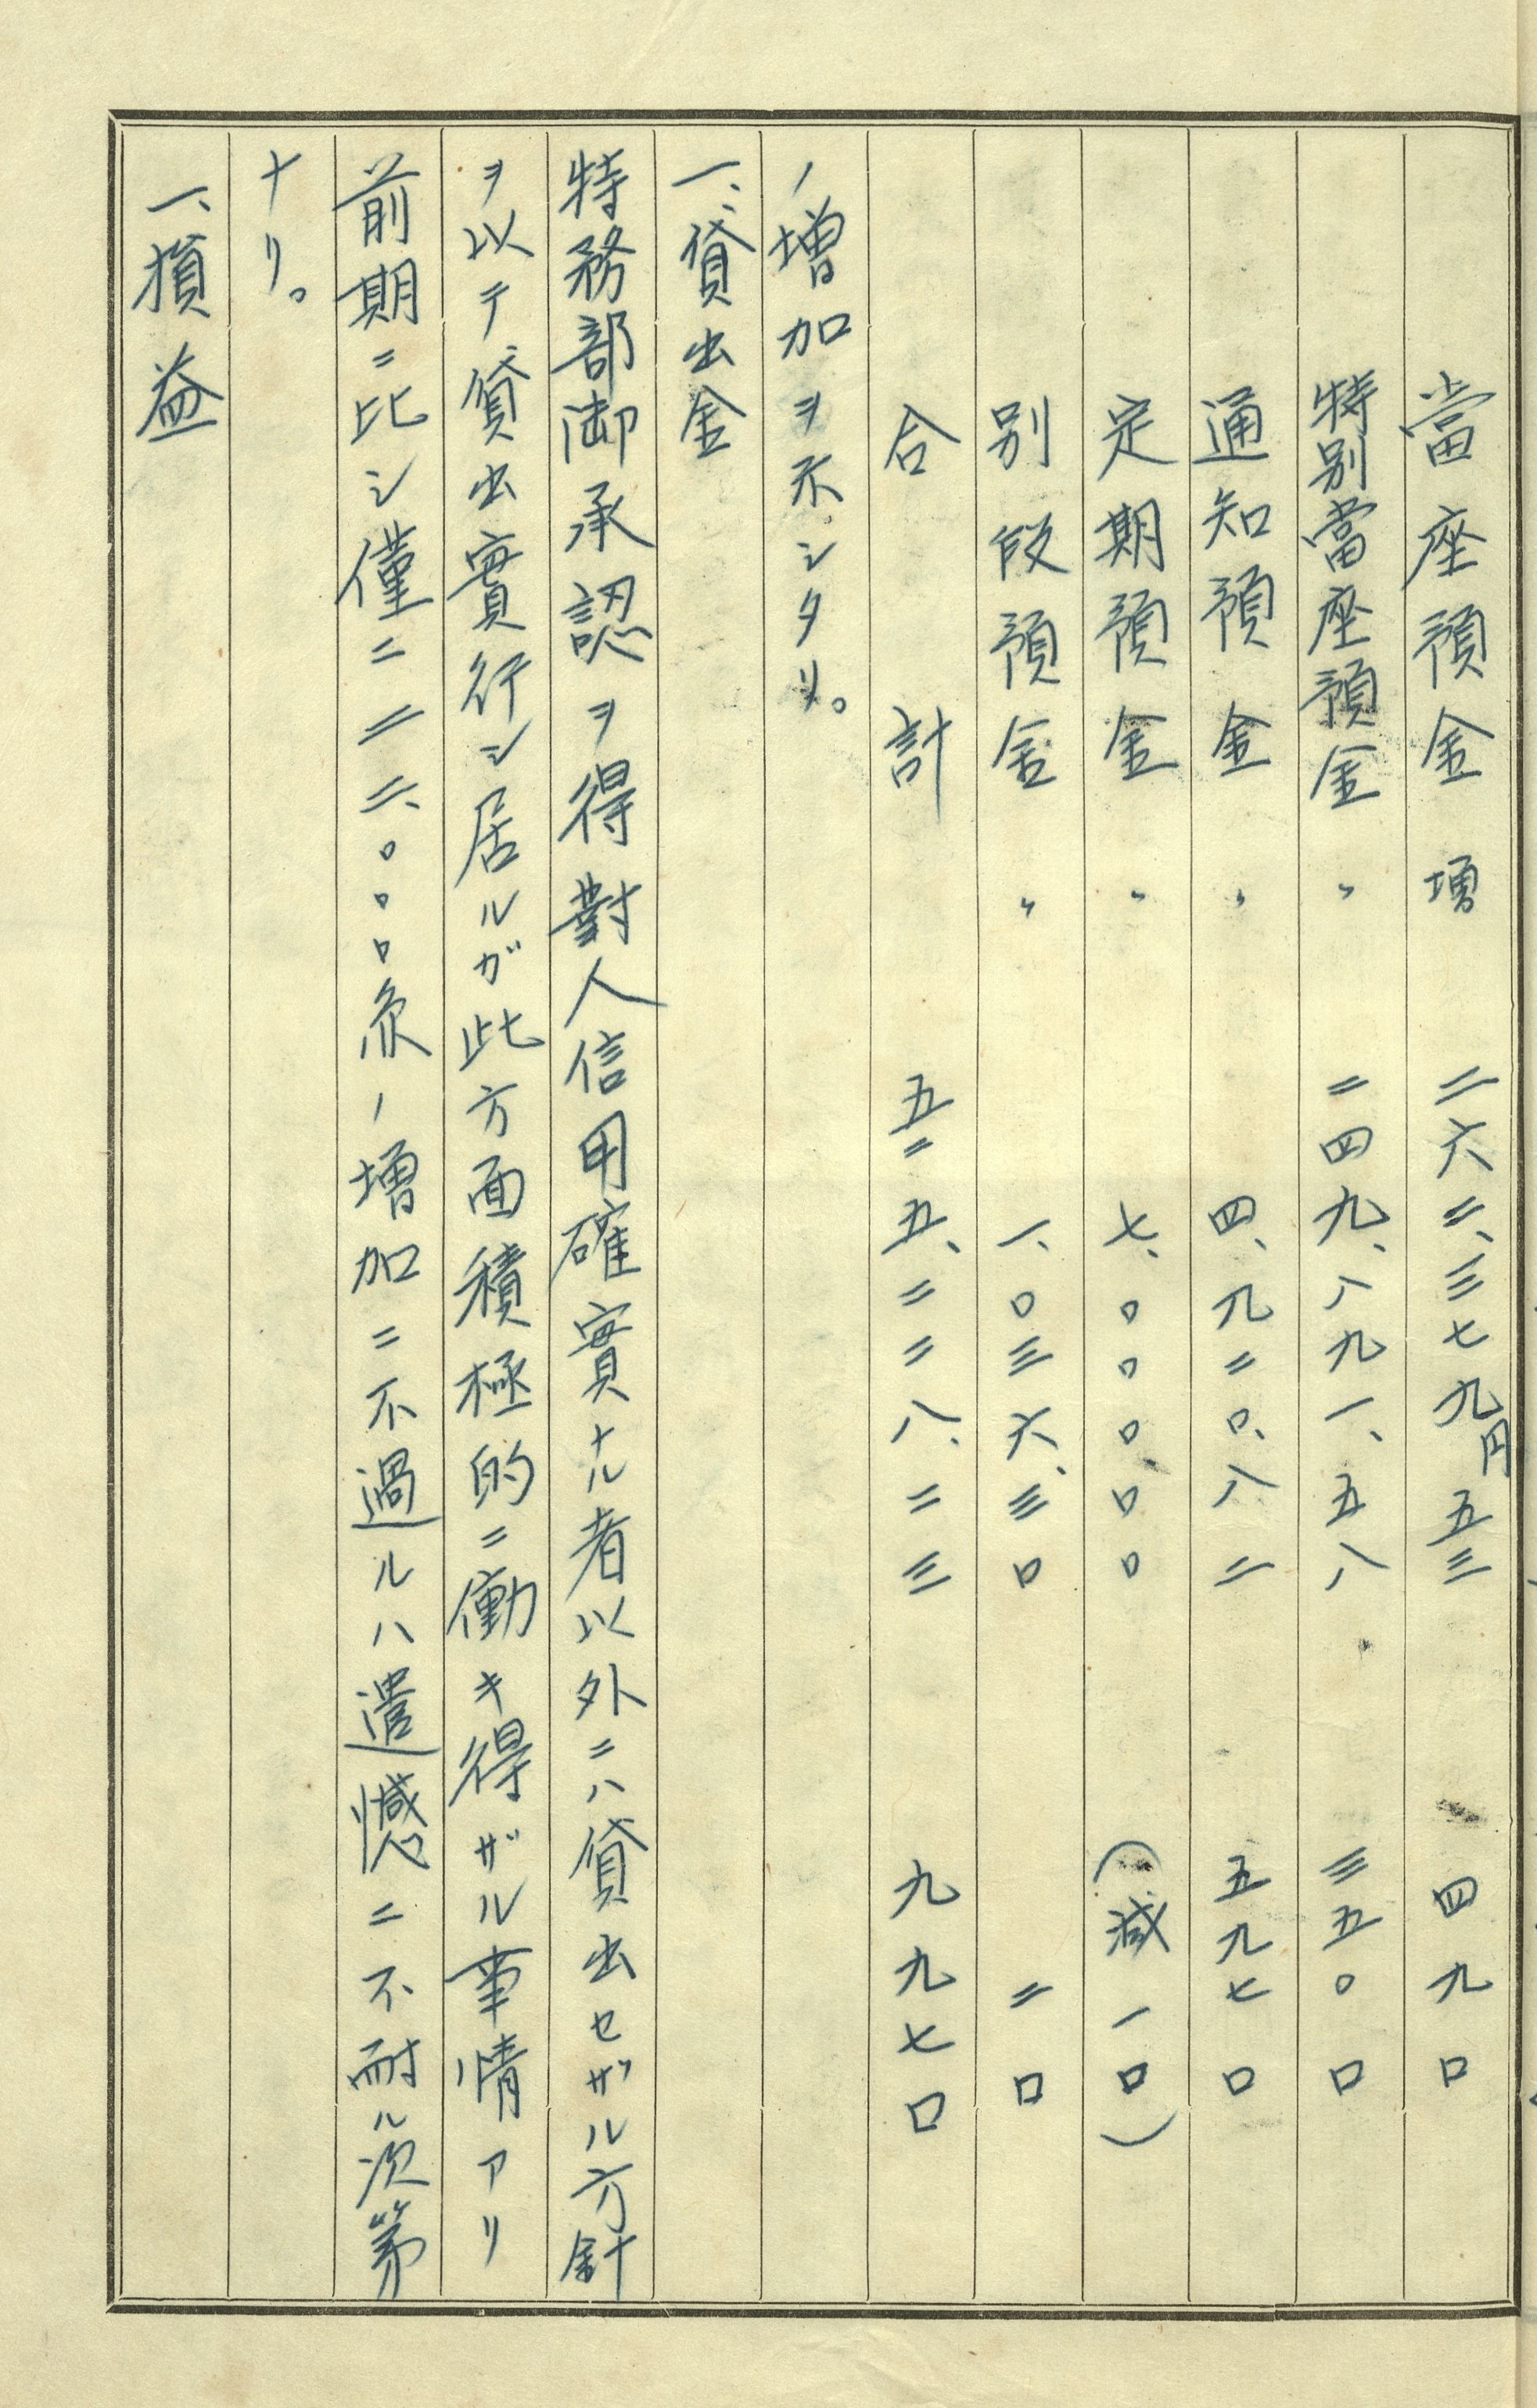 當座預金 増 二六二、三七九円五三 四九口
特別當座預金 〃 二四九、八九一、五八 三五〇口
通知預金 〃 四、九二〇、八二 五九七口
定期預金 〃 七、〇〇〇〇〇 (減一口)
別段預金 〃 一、〇三六、三〇 二口
合計 五二五、二二八、二三 九九七口
ノ増加ヲ示シタリ。
一、貸出金
特務部御承認ヲ得對人信用確實ナル者以外ニハ貸出セザル方針
ヲ以テ貸出實行シ居ルガ此方面積極的ニ働キ得ザル事情アリ
前期ニ比シ僅ニ二二、〇〇〇余ノ増加ニ不過ルハ遺憾ニ不耐ル次第
ナリ。
一、損益